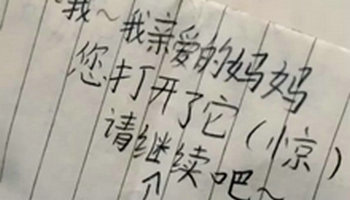 我～我亲爱的妈妈
您打开了它（惊）
请继续吧～
个